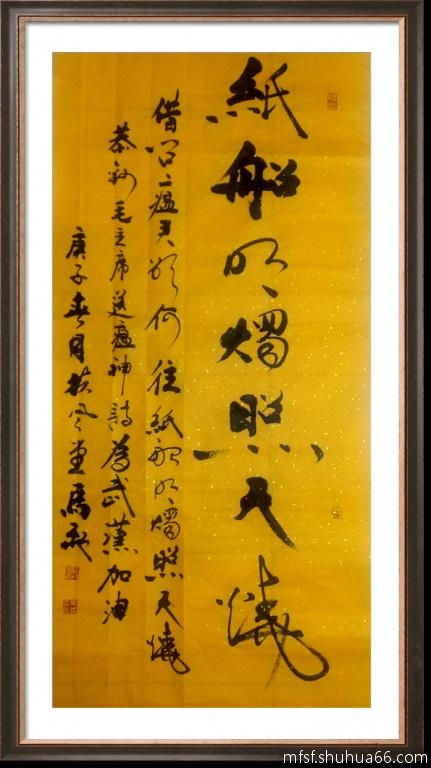 紙船明燭照天燒
借问瘟君欲何往紙船明燭照天燒
恭毛主席送瘟神詩為武漢加油
庚子春月扶风堂馬
mfsf.shuhua66.com